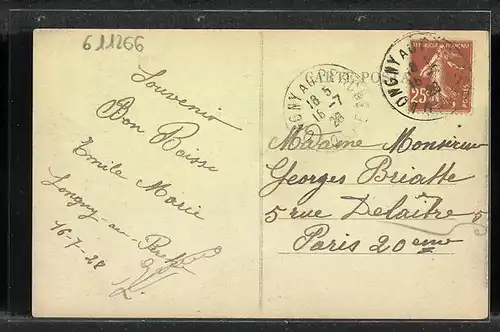 611266
Souvenir
Bon Baiser
Emile Marie
Longny-au-Perche
16-7-28
CARTE POSTALE
LONGNY AU PERCHE
18 5
16-7
28
REPUBLIQUE FRANÇAISE
25
POSTES
Madame Monsieur
Georges Briatte
5 rue Delaître 5
Paris 20eme